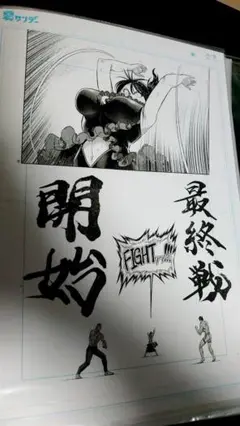 裏サンデー
最終戦
開始
FIGHT!!!